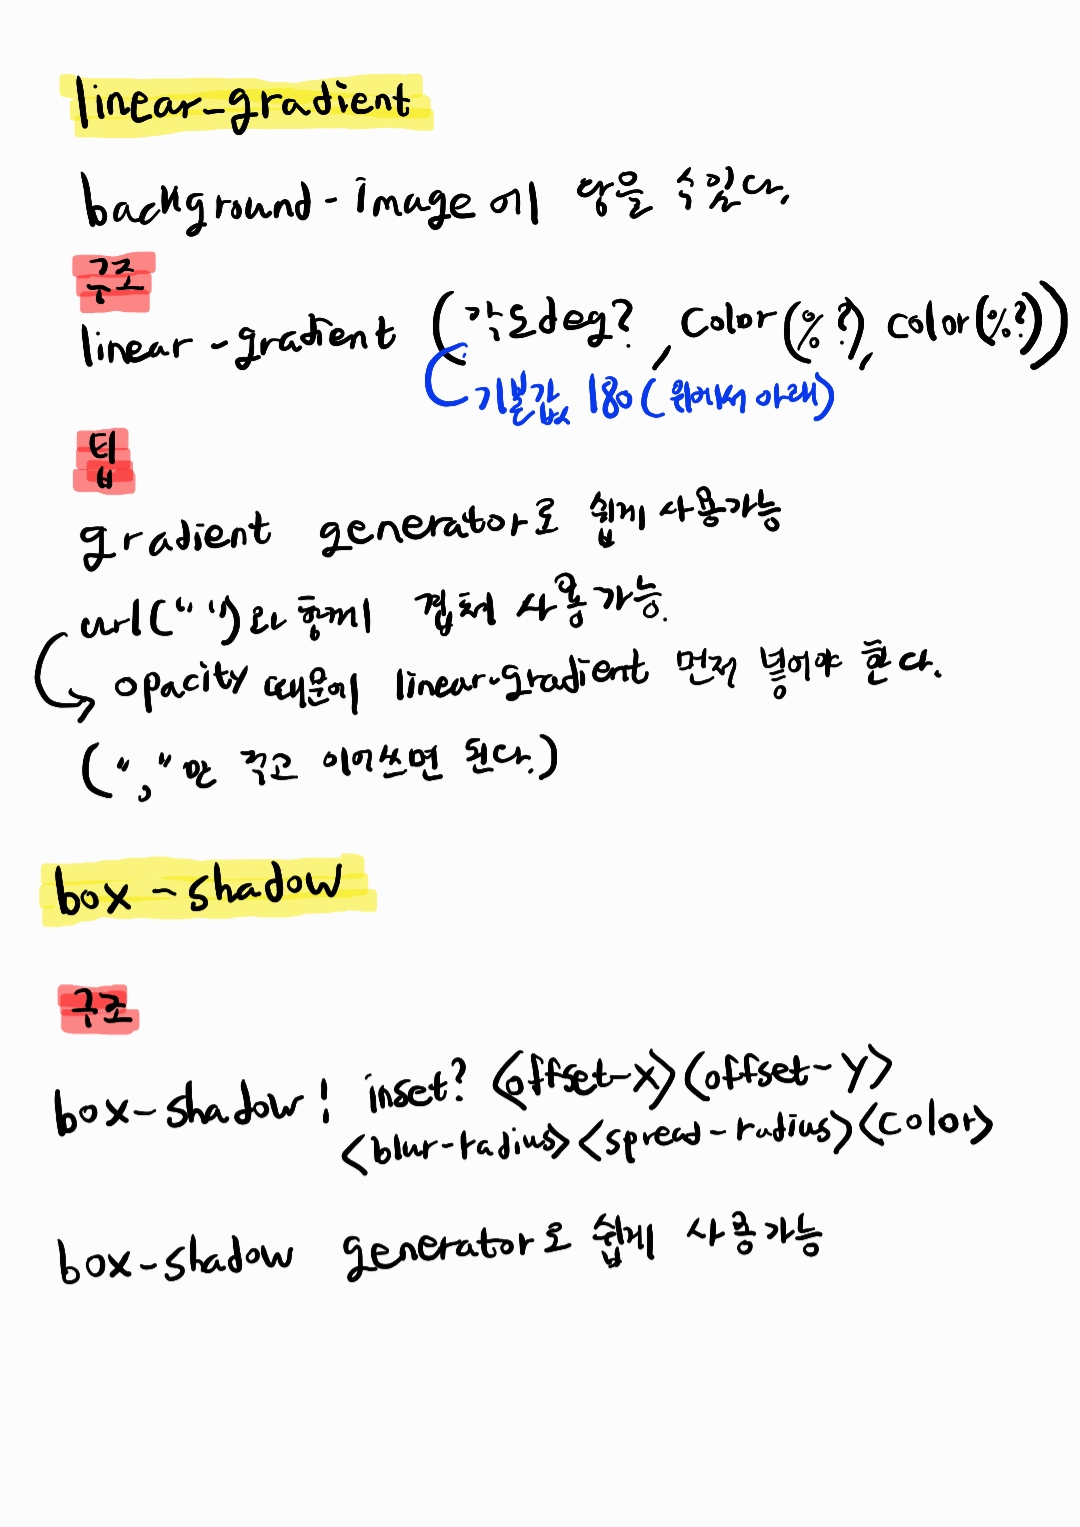 linear-gradient
background-image에 담을 수있다.
구조
linear-gradient (각도deg?, color(%?), color(%?))
기본값 180(위에서 아래)
팁
gradient generator로 쉽게 사용가능
url("")와 함께 겹쳐 사용가능.
opacity 때문에 linear-gradient 먼저 넣어야 한다.
(","만 찍고 이어쓰면 된다.)
box-shadow
구조
box-shadow: inset? <offset-x><offset-y>
<blur-radius><spread-radius><color>
box-shadow generator로 쉽게 사용가능